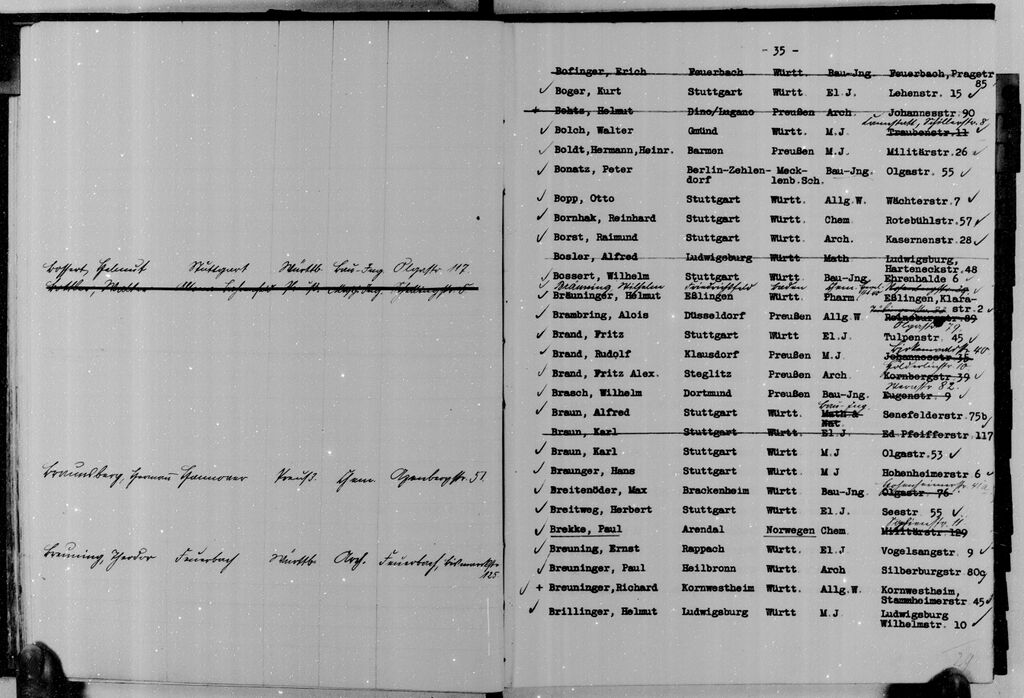 Bossert, Helmut Stuttgart Württb. Bau-Ing. Olgastr. 117.
Braunsberg, Hannover Preuß. Chem. 51.
Breuning, Theodor Feuerbach Württb. Arch. Feuerbach, Bismarckstr.
125
- 35 -
Bofinger, Erich Feuerbach Württ. Bau-Jng. Feuerbach, Pragstr
85
Boger, Kurt Stuttgart Württ. El.J. Lehenstr. 15
+ Bohtz, Helmut Dino/Lugano Preußen Arch. Johannesstr. 90
Cannstatt, Schillerstr. 8
Bolch, Walter Gmünd Württ. M.J. Traubenstr. 11
Boldt,Hermann,Heinr. Barmen Preußen M.J. Militärstr. 26
Bonatz, Peter Berlin-Zehlen- Meck- Bau-Jng. Olgastr. 55
dorf lenb.Sch.
Bopp, Otto Stuttgart Württ. Allg.W. Wächterstr. 7
Bornhak, Reinhard Stuttgart Württ. Chem. Rotebühlstr. 57
Borst, Raimund Stuttgart Württ. Arch. Kasernenstr. 28
Bosler, Alfred Ludwigsburg Württ Math Ludwigsburg,
Harteneckstr. 48
Bossert, Wilhelm Stuttgart Württ. Bau-Jng. Ehrenhalde 6
Bräuning, Wilhelm Friedrichsfeld Baden Chem.
Bräuninger, Helmut Eßlingen Württ. Pharm. Eßlingen, Klara-
str. 2
Brambring, Alois Düsseldorf Preußen Allg.W Reinsburgstr. 89
Olgastr. 79
Brand, Fritz Stuttgart Württ El.J. Tulpenstr. 45
Birkenwaldstr. 40
Brand, Rudolf Klausdorf Preußen M.J. Johannesstr 15
Hölderlinstr. 10
Brand, Fritz Alex. Steglitz Preußen Arch. Kornbergstr 39
Werastr. 82.
Brasch, Wilhelm Dortmund Preußen Bau-Jng. Eugenstr. 9
Bau-Ing.
Braun, Alfred Stuttgart Württ. Math & Senefelderstr. 75b
Nat.
Braun, Karl Stuttgart Württ. El.J Ed Pfeifferstr 117
Braun, Karl Stuttgart Württ. M.J Olgastr. 53
Braunger, Hans Stuttgart Württ. M J Hohenheimerstr 6
Hohenheimerstr. 41a
Breitenöder, Max Brackenheim Württ Bau-Jng. Olgastr. 76
Breitweg, Herbert Stuttgart Württ. El.J. Seestr 55
Sophienstr. 11
Brekke, Paul Arendal Norwegen Chem. Militärstr 129
Breuning, Ernst Rappach Württ. El.J Vogelsangstr. 9
Breuninger, Paul Heilbronn Württ. Arch Silberburgstr 80c
+ Breuninger,Richard Kornwestheim Württ. Allg.W. Kornwestheim,
Stammheimerstr 45
Brillinger, Helmut Ludwigsburg Württ M.J. Ludwigsburg
Wilhelmstr. 10